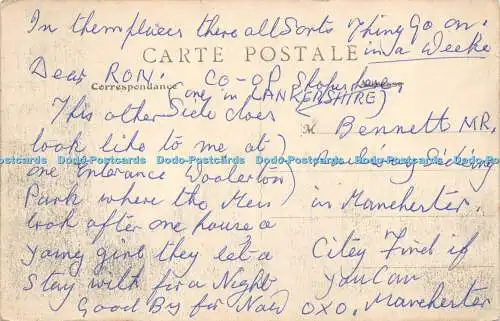 In them places there all Sorts Thing Go on.
in a Weeke
CARTE POSTALE
Dear RON. CO-OP Shops
Correspondance
one in LANKERSHIRE)
This other Side does
M Bennett MR.
look like to me at)
Siding
Dodo-Postcards Dodo-Postcards Dodo-Postcards Dodo-Postcards Dodo-Postcards
one Entarance Woolerton)
Park where the Men
in Manchester.
look after one house a
young girl they let a
Citey Find if
Stay with for a Night
you Can
Good By for Now OXO. Manchester